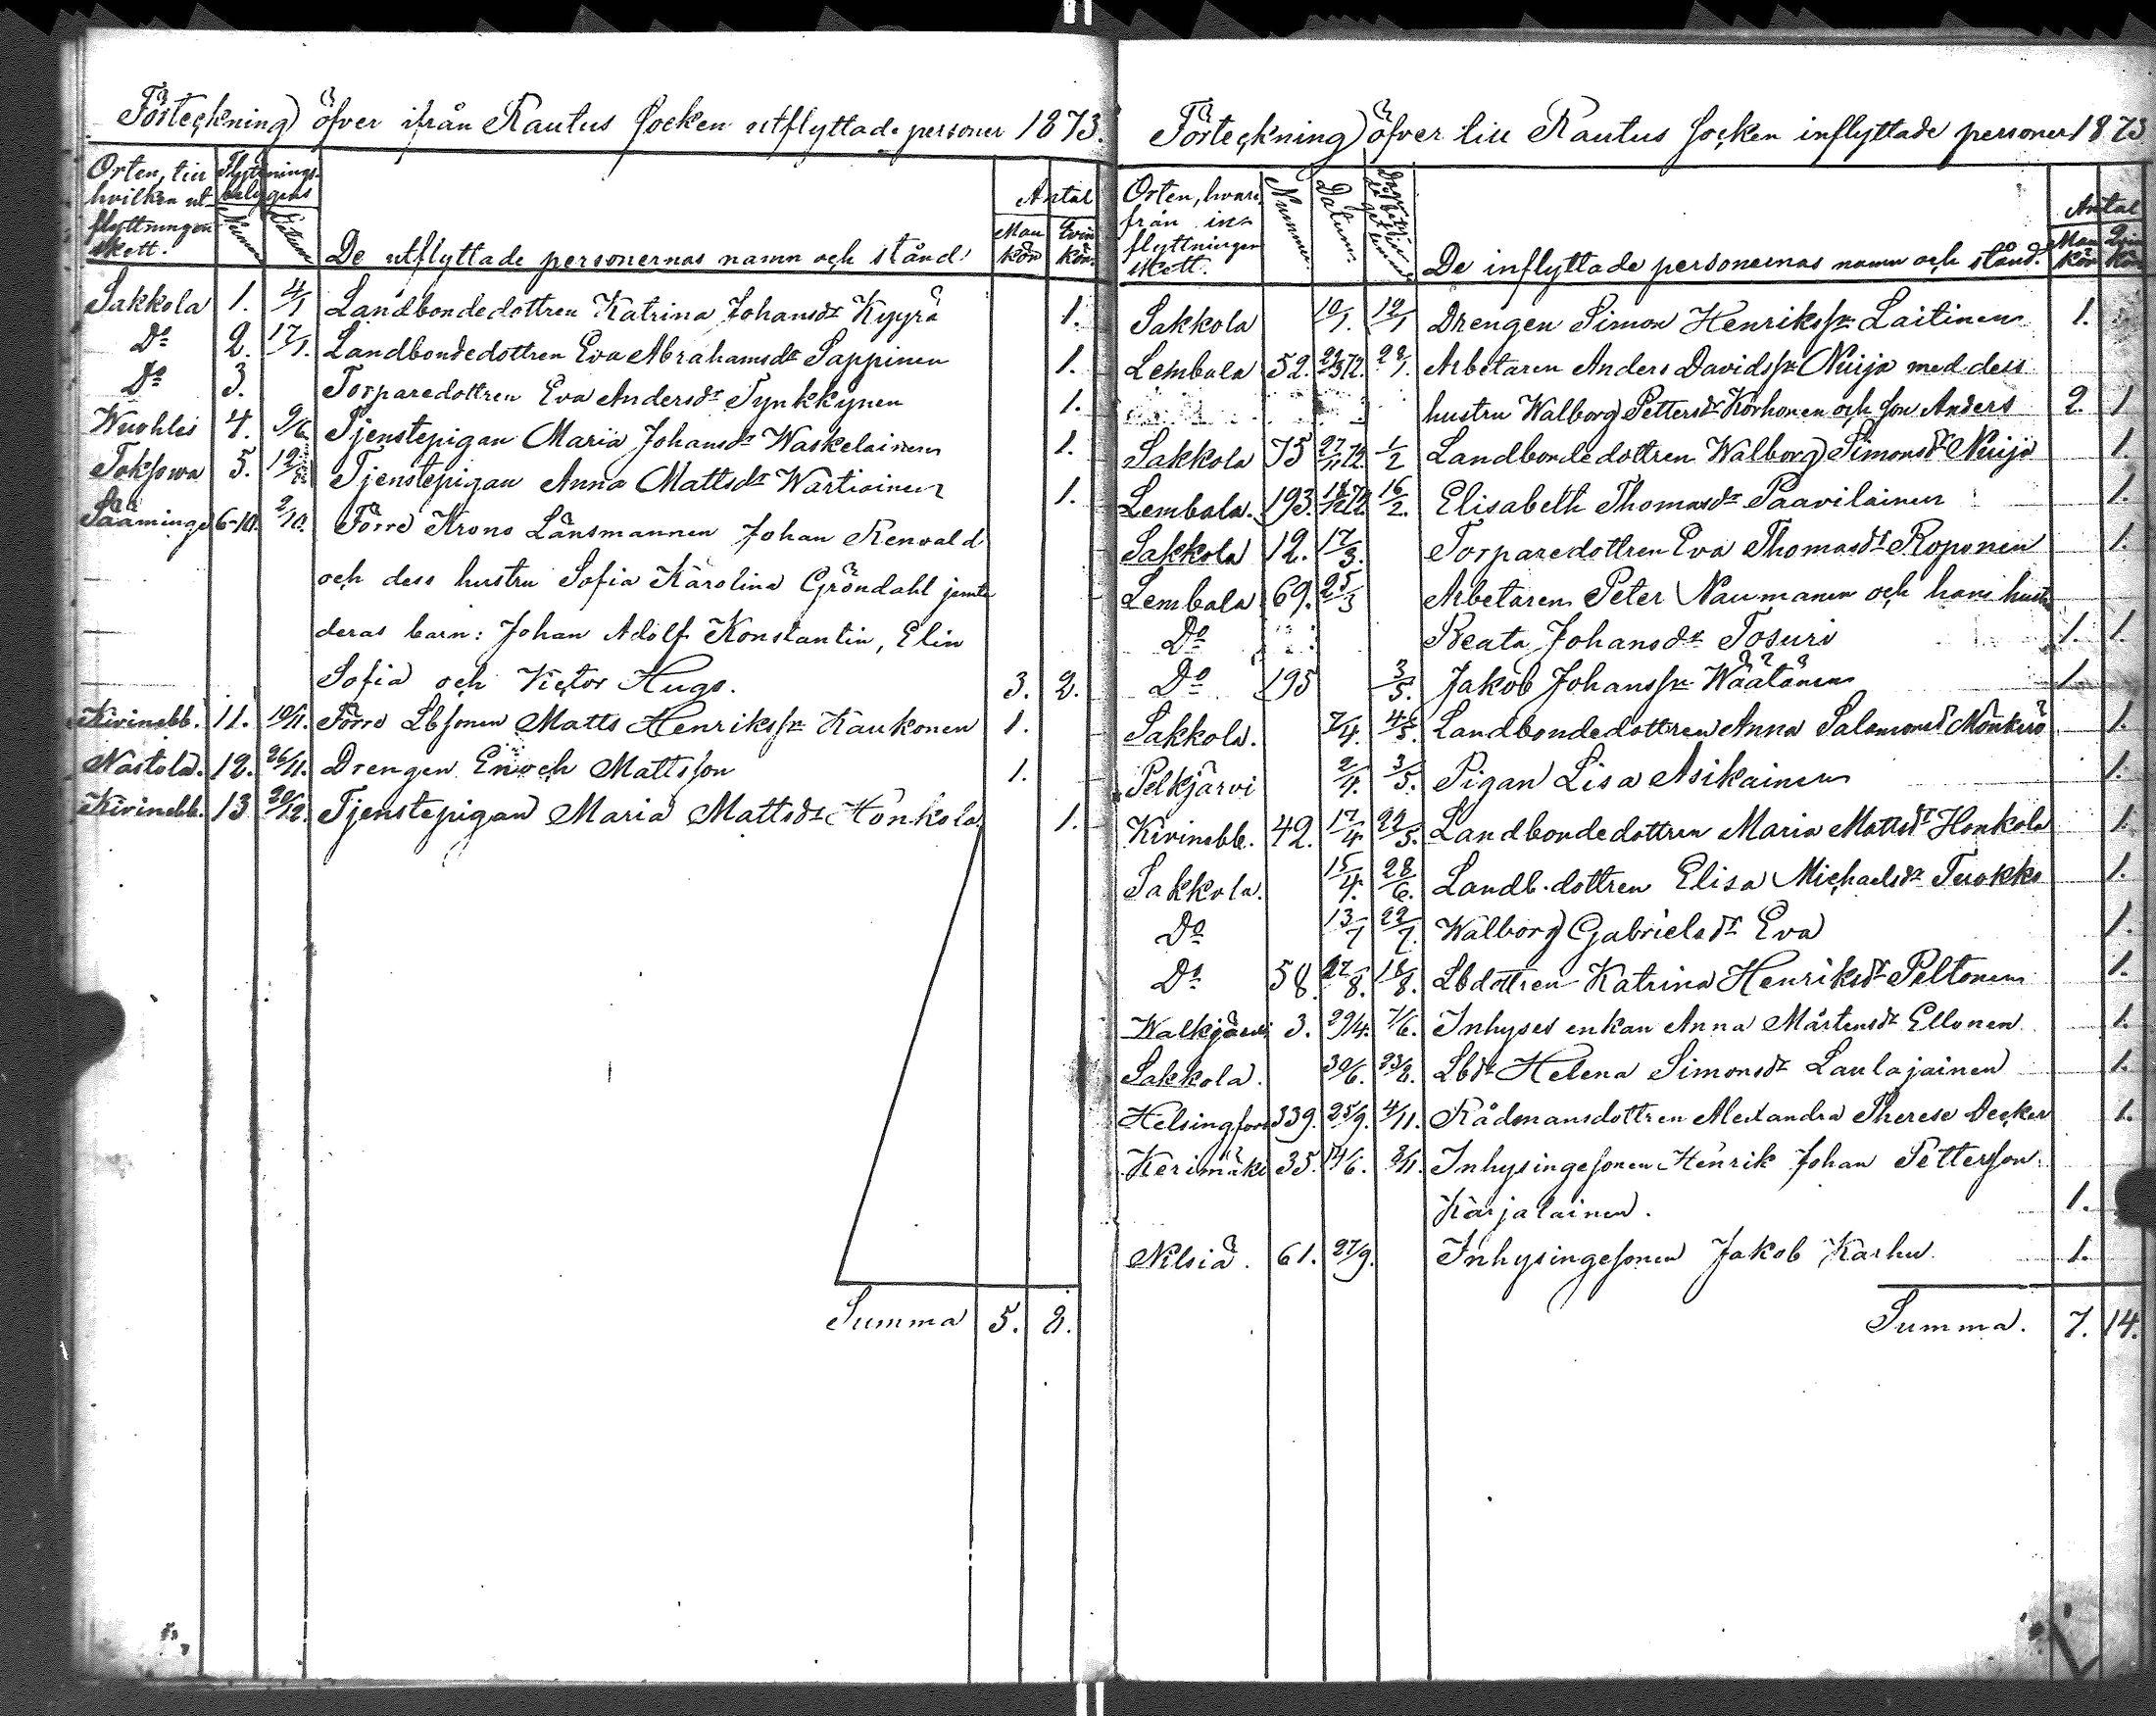 Förteckning öfver ifrån Rautus Socken utflyttade personer 1873.
Orten, till hvilken utflyttningen skett. Flyttningsbetygens Numer Datum De utflyttade personernas namn och stånd. Antal Mankön Qvinkön.
Sakkola 1. 4/1 Landbondedottren Katrina Johansdr Kyyrä 1.
Do 2. 17/1. Landbondedottren Eva Abrahamsdr Sappinen 1.
Do 3. Torparedottren Eva Andersdr Tynkkynen 1.
Wuohles 4. 9/6 Tjenstepigan Maria Johansdr Waskelainen 1.
Toksowa 5. Tjenstepigan Anna Mattsdr Wartiainen 1.
Sääminge 6-10. 2/10. Förre Krono Länsmannen Johan Renvald
och dess hustru Sofia Karolina Gröndahl jemte
deras barn: Johan Adolf Konstantin, Elin
Sofia och Victor Hugo. 3. 2.
Kivinebb. 11. 10/11. Förre Lbsonen Matts Henrikssn Kaukonen 1.
Nastola. 12. 26/11. Drengen Enoch Mattsson 1.
Kivinebb. 13 30/12. Tjenstepigan Maria Mattsdr Honkola 1.
Summa 5. 8.
Förteckning öfver till Rautus Socken inflyttade personer 1873
Orten, hvarifrån inflyttningen skett. Nummer. Datum. De inflyttade personernas namn och stånd. Antal Mankön Qvinkön
Sakkola 10/1. 19/1 Drengen Simon Henrikssn Laitinen 1.
Lembala 52. Arbetaren Anders Davidssn Nuija med dess
hustru Walborg Pettersdr Korhonen och son Anders 2. 1
Sakkola 75 27/11 72. 1/2 Landbondedottren Walborg Simonsdr Nuija 1.
Lembala. 193. 16/2. Elisabeth Thomasdr Paavilainen 1.
Sakkola 12. 17/3. Torparedottren Eva Thomasdr Roponen 1.
Lembala 69. 25/3 Arbetaren Peter Naumanen och hans hustru
Do Beata Johansdr Tosuri 1. 1.
Do 195 3/5. Jakob Johanssn Wäätänen 1.
Sakkola. 7/4. 4/5. Landbondedottren Anna Salomonsdr 1.
Pelkjärvi 2/4. 3/5. Pigan Lisa Asikainen 1.
Kivinebb. 42. 17/4 22/5. Landbondedottren Maria Mattsdr Honkola 1.
Sakkola. 15/4. 28/6. Landb.dottren Elisa Michaelsdr Turkki 1.
Do 13/7 22/7. Walborg Gabrielsdr Eva 1.
Do 58. 17/8. 18/8. Lbdottren Katrina Henriksdr Peltonen 1.
Walkjärvi 3. 29/4. 7/6. Inhyses enkan Anna Mårtensdr Ellonen 1.
Sakkola. 30/6. 23/8. Lbdr Helena Simonsdr Laulajainen 1.
Helsingfors 339. 25/9. 4/11. Rådmansdottren Alexandra Therese Decker 1.
Kerimäki 35. 14/6. Inhysingesonen Henrik Johan Pettersson
Karjalainen. 1.
Nilsiä. 61. 27/9. Inhysingesonen Jakob Karhu. 1.
Summa. 7. 14.